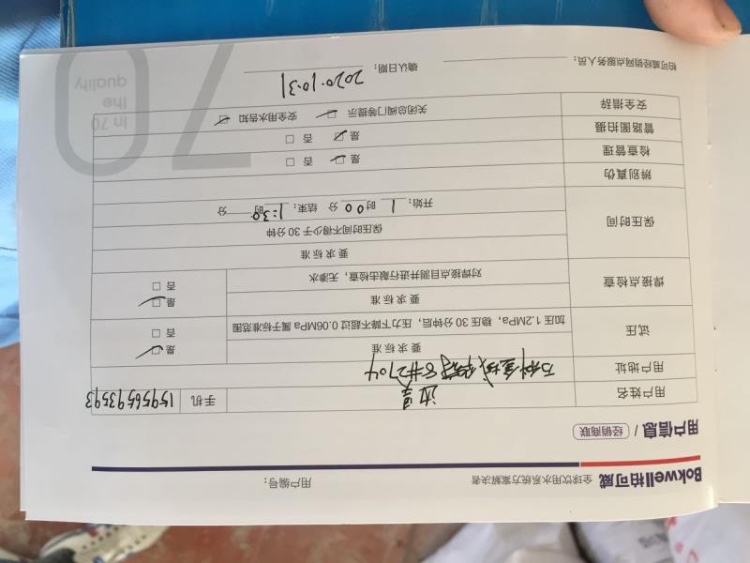 Bokwell柏可威 全球饮用水系统方案解决者 用户编号：
用户信息 / 经销商联
用户姓名 边 手机 15956593593
用户地址 万科金域 8#2704
试压 要求标准 是 ☑
加压1.2MPa，稳压30分钟后，压力下降不超过0.06MPa属于标准范围 否 □
焊接点检查 要求标准 是 ☑
对焊接点目测并进行敲击检查，无渗水 否 □
保压时间 要求标准
保压时间不得少于30分钟
开始：1时00分 结束：1:30时 分
辨别真伪
检查管理 是 ☑ 否 □
管路图拍摄 是 ☑ 否 □
安全措辞 关闭总阀门等提示 ☑ 安全用水告知 ☑
柏可威经销网点服务人员： 确认日期：2020.10.31
In 70
the
quality
70